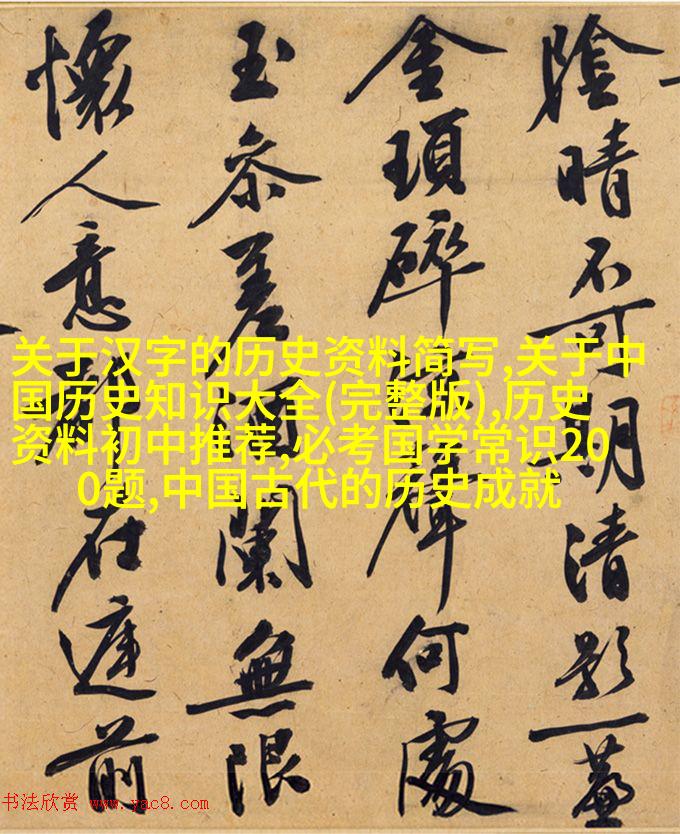 陰晴不可清影一
金瑣碎聲何處
玉參差闌無限
懷人意在前
关于汉字的历史资料简写,关于中
国历史知识大全(完整版),历史
资料初中推荐,必考国学常识20
0题,中国古代的历史成就
书法欣赏 www.yac8.com